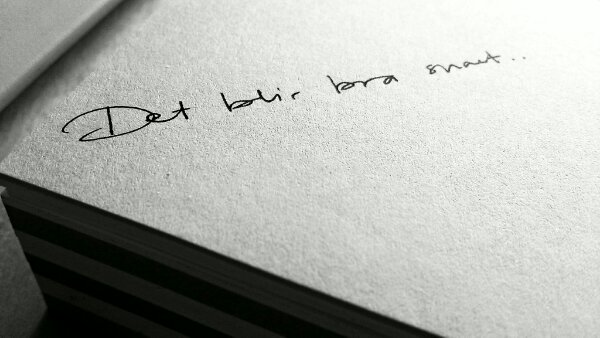 Det blir bra snart..